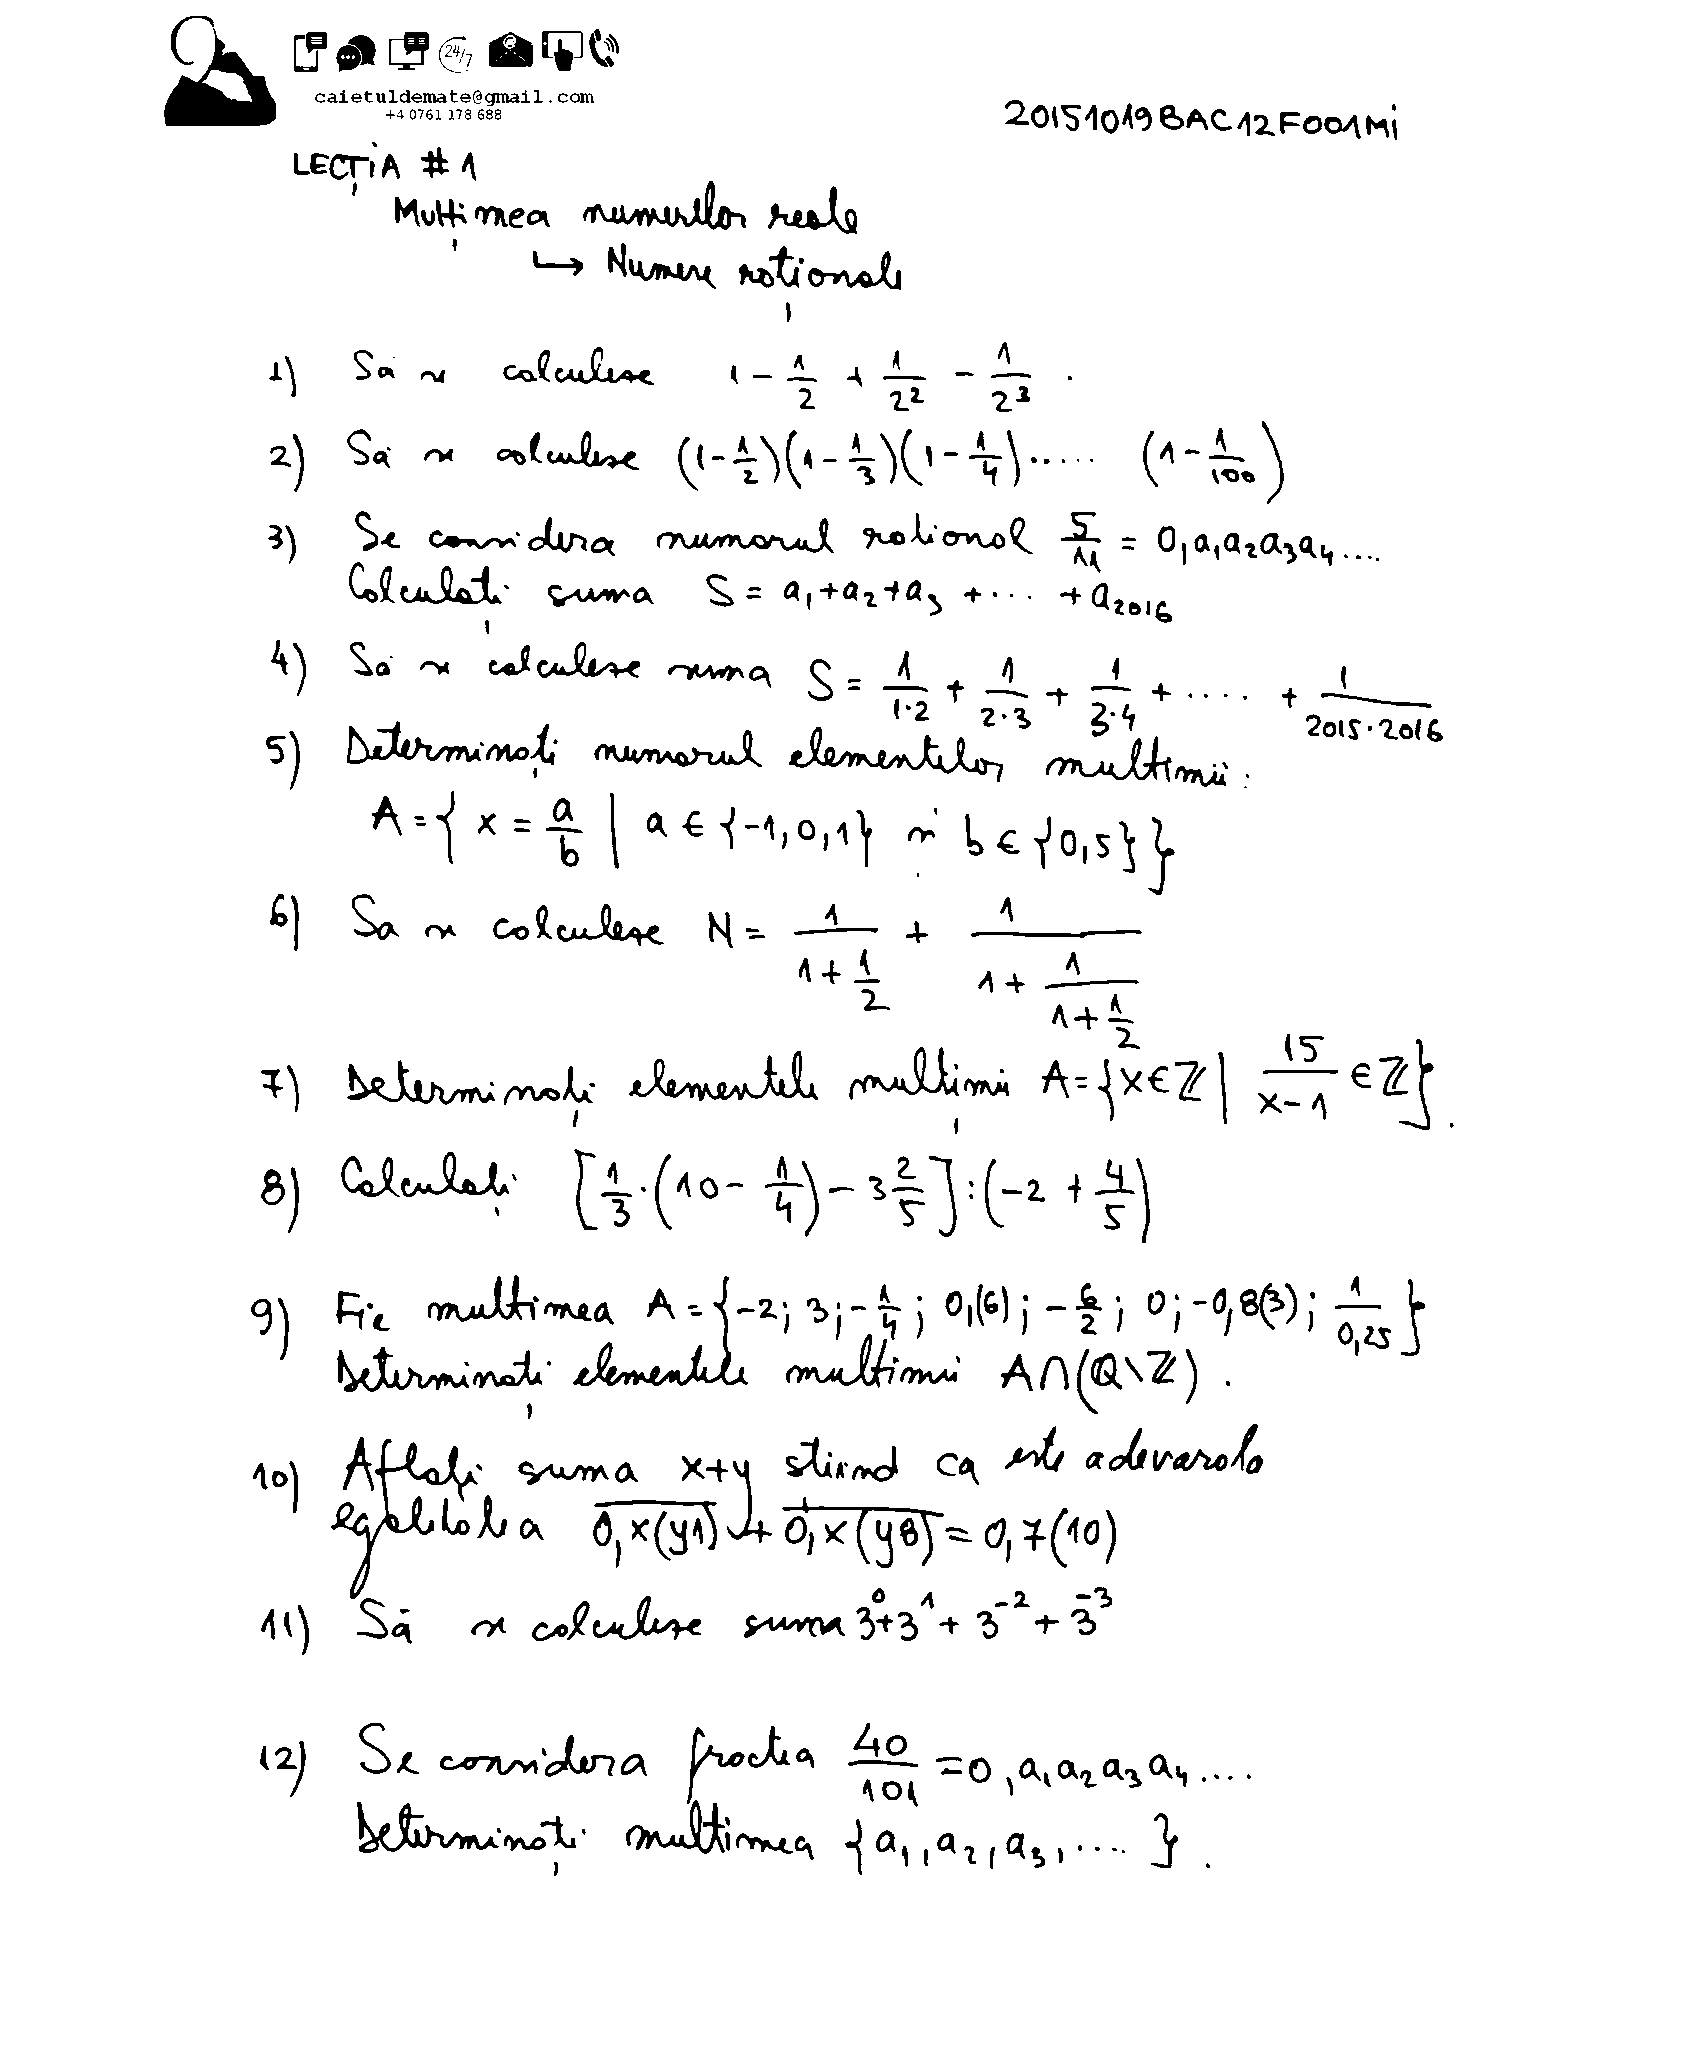 24/7
caietuldemate@gmail.com
+4 0761 178 688
20151019BAC12F001Mi
LECȚIA # 1
Mulțimea numerelor reale
↳ Numere raționale
1) Sa se calculeze 1 - 1/2 + 1/2² - 1/2³ .
2) Sa se calculeze (1-1/2)(1-1/3)(1-1/4)..... (1-1/100)
3) Se considera numarul rational 5/11 = 0,a₁a₂a₃a₄....
Calculați suma S = a₁+a₂+a₃ +... +a₂₀₁₆
4) Sa se calculeze suma S = 1/(1·2) + 1/(2·3) + 1/(3·4) + .... + 1/(2015·2016)
5) Determinați numarul elementelor multimii :
A = { x = a/b | a ∈ {-1,0,1} si b ∈ {0,5} }
6) Sa se calculeze N = 1/(1+1/2) + 1/(1+1/(1+1/2))
7) Determinați elementele mulțimii A = {x∈ℤ | 15/(x-1) ∈ℤ}.
8) Calculați [1/3·(10-1/4)-3 2/5]:(-2+4/5)
9) Fie multimea A = {-2; 3; -1/4; 0,(6); -6/2; 0; -0,8(3); 1/0,25}
Determinați elementele multimii A∩(Q\ℤ) .
10) Aflați suma x+y stiind ca este adevarata
egalitatea 0,x(y1) + 0,x(y8) = 0,7(10)
11) Să se calculeze suma 3⁰+3¹+3⁻²+3⁻³
12) Se considera fractia 40/101 = 0,a₁a₂a₃a₄....
Determinați multimea {a₁,a₂,a₃,.... } .